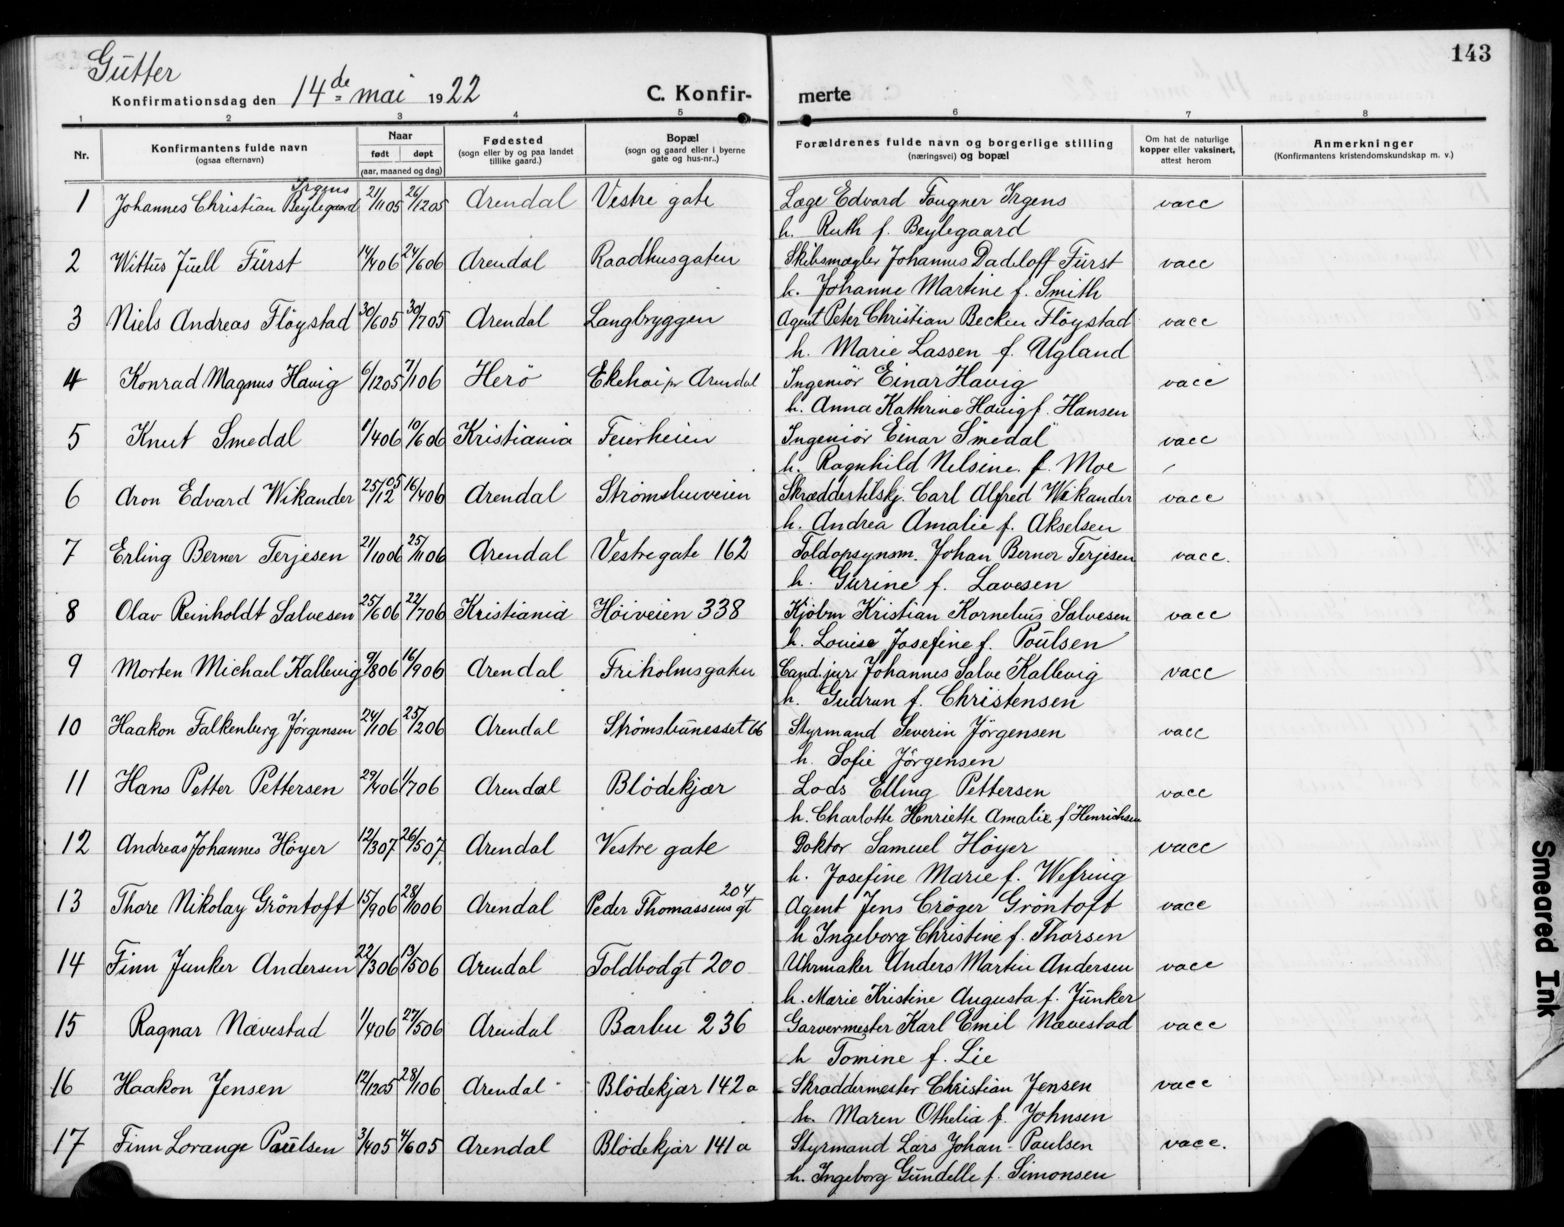 143
Gutter
Konfirmationsdag den 14de mai 1922 C. Konfirmerte
1 2 3 4 5 6 7 8
Nr. Konfirmantens fulde navn (ogsaa efternavn) Naar født døpt (aar, maaned og dag) Fødested (sogn eller by og paa landet tillike gaard.) Bopæl (sogn og gaard eller i byerne gate og hus-nr..) Forældrenes fulde navn og borgerlige stilling (næringsvei) og bopæl Om hat de naturlige kopper eller vaksinert, attest herom Anmerkninger (Konfirmantens kristendomskundskap m. v.)
1 Johannes Christian Beylegaard Irgens 21/11 05 26/12 05 Arendal Vestre gate Læge Edvard Fougner Irgens vacc
h. Ruth f. Beylegaard
2 Wittus Juell Fürst 14/4 06 24/6 06 Arendal Raadhusgaten Skibsmægler Johannes Dadeloff Fürst vacc
h. Johanne Martine f. Smith
3 Niels Andreas Fløystad 30/6 05 30/7 05 Arendal Langbryggen Agent Peter Christian Becken Fløystad vacc
h. Marie Lassen f. Ugland
4 Konrad Magnus Havig 6/12 05 7/1 06 Herö Ekehei pr Arendal Ingeniør Einar Havig vacc
h. Anna Kathrine Havig f. Hansen
5 Knut Smedal 1/4 06 10/6 06 Kristiania Feierheien Ingeniør Einar Smedal vacc
h. Ragnhild Nilsine f. Moe
6 Aron Edvard Wikander 25/12 05 16/4 06 Arendal Strømsbuveien Skræddertilskj. Carl Alfred Wikander vacc
h. Andrea Amalie f. Akselsen
7 Erling Berner Terjesen 21/10 06 25/11 06 Arendal Vestre gate 162 Toldopsynsm. Johan Berner Terjesen vacc.
h. Gurine f. Lavesen
8 Olav Reinholdt Salvesen 25/6 06 22/7 06 Kristiania Høiveien 338 Kjøbm Kristian Kornelius Salvesen vacc
h. Louise Josefine f. Poulsen
9 Morten Michael Kallevig 9/8 06 16/9 06 Arendal Friholmsgaten Cand. jur. Johannes Salve Kallevig vacc
h. Gudrun f. Christensen
10 Haakon Falkenberg Jørgensen 24/1 06 25/2 06 Arendal Strømsbunesset 66 Styrmand Severin Jørgensen vacc
h. Sofie Jörgensen
11 Hans Petter Pettersen 29/4 06 1/7 06 Arendal Blödekjær Lods Elling Pettersen vacc
h. Charlotte Henriette Amalie f Henrichsen
12 Andreas Johannes Höyer 12/3 07 26/5 07 Arendal Vestre gate Doktor Samuel Höyer vacc
h. Josefine Marie f. Wefring
13 Thore Nikolay Gröntoft 15/9 06 28/10 06 Arendal Peder Thomassens gt 204 Agent Jens Crøger Gröntoft vacc
h Ingeborg Christine f. Thorsen
14 Finn Junker Andersen 22/3 06 13/5 06 Arendal Toldbodgt 200 Uhrmaker Anders Martin Andersen vacc
h. Marie Kristine Augusta f. Junker
15 Ragnar Nævestad 1/4 06 27/5 06 Arendal Barbu 236 Garvermester Karl Emil Nævestad vacc
h Tomine f. Lie
16 Haakon Jensen 12/12 05 28/1 06 Arendal Blödekjær 142a Skræddermester Christian Jensen vacc
h. Maren Othelia f. Johnsen
17 Finn Lorange Paulsen 3/4 05 4/6 05 Arendal Blödekjær 141a Styrmand Lars Johan Paulsen vacc.
h. Ingeborg Gundelle f. Simonsen
Smeared Ink